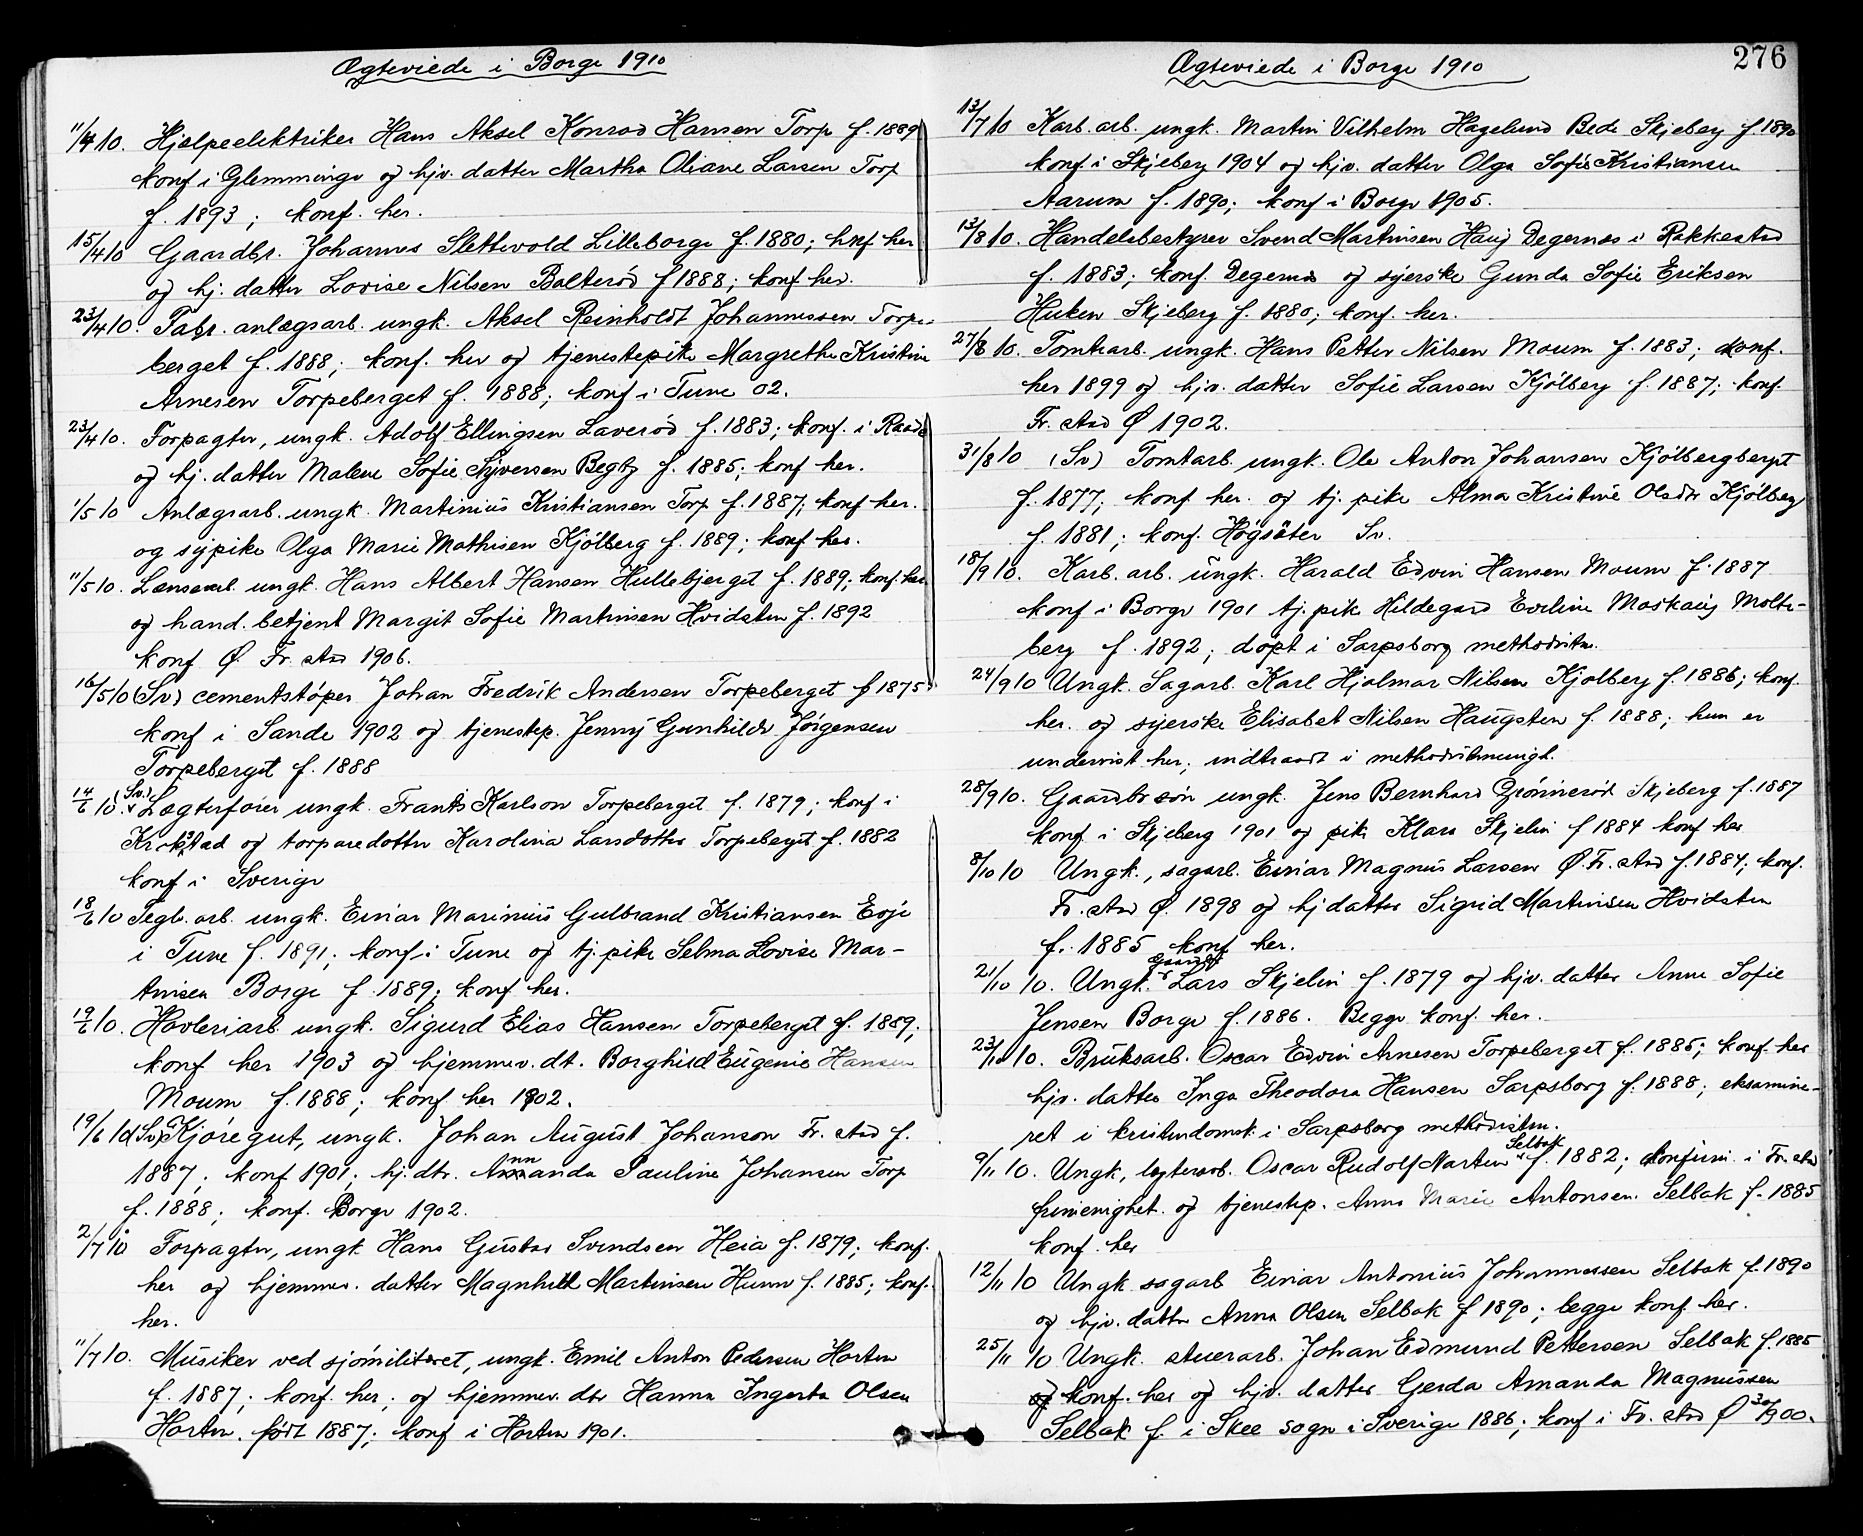 Ægteviede i Borge 1910
11/4 10. Hjelpeelektriker Hans Aksel Konrad Hansen Torp f. 1889
konf i Glemminge og hjv. datter Martha Oliane Larsen Torp
f. 1893; konf. her.
15/4 10 Gaardbr. Johannes Slettevold Lilleborge f. 1880; konf her
og hj. datter Lovise Nilsen Bolterød f 1888; konf her.
23/4 10. Fabr. anlægsarb. ungk. Aksel Reinholdt Johannessen Torpe-
berget f. 1888; konf. her og tjenestepike Margrethe Kristine
Arnesen Torpeberget f. 1888; konf i Tune 02.
23/4 10. Forpagter, ungk. Adolf Ellingsen Laverød f. 1883; konf. i Raade
og hj. datter Malene Sofie Syversen Begby f. 1885; konf her.
1/5 10 Anlægsarb. ungk. Martinius Kristiansen Torp f. 1887; konf her.
og sypike Olga Marie Mathisen Kjølberg f. 1889; konf her.
11/5 10. Lensearb. ungk. Hans Albert Hansen Hullebjerget f. 1889; konf. her
og hand. betjent Margit Sofie Martinsen Hvidsten f. 1892
konf Ø. Fr. stad 1906.
16/5 10 (Sv) cementstøper Johan Fredrik Andersen Torpeberget f 1875
konf i Sande 1902 og tjenestep. Jenny Gunhilda Jørgensen
Torpeberget f. 1888
14/6 10. (Sv.) Lægterfører ungk. Frants Karlson Torpeberget f. 1879; konf i
Krokstad og torparedotter Karolina Larsdotter Torpeberget f. 1882
konf i Sverige
18/6 10 Teglv. arb. ungk. Einar Marinius Gulbrand Kristiansen Evje
i Tune f. 1891; konf i Tune og tj. pike Selma Lovise Mar-
tinsen Borge f. 1889; konf her.
19/6 10. Høvleriarb. ungk. Sigurd Elias Hansen Torpeberget f. 1889;
konf her 1903 og hjemmev. dt. Borghild Eugenie Hansen
Moum f. 1888; konf her 1902.
19/6 10 (Sv) Kjøregut, ungk. Johan August Johanson Fr. stad f.
1887; konf 1901; hj. dtr. Amanda Pauline Johansen Torp
f. 1888; konf. Borge 1902.
2/7 10 Forpagter, ungk. Hans Gustav Svendsen Heia f. 1879; konf.
her og hjemmev. datter Magnhild Martinsen Hunn f. 1885; konf.
her.
11/7 10. Musiker ved sjømilitæret, ungk. Emil Anton Pedersen Horten
f. 1887; konf. her; og hjemmev. dtr Hanna Ingerta Olsen
Horten. født 1887; konf i Horten 1901.
Ægteviede i Borge 1910
276
13/7 10 Karb. arb. ungk. Martin Vilhelm Hagelund Bede Skjeberg f. 1890
konf i Skjeberg 1904 og hjv. datter Olga Sofie Kristiansen
Aarum f. 1890; konf i Borge 1905.
13/8 10. Handelsbestyrer Svend Martinsen Haug Degernes i Rakkestad
f. 1883; konf. Degernes og syerske Gunda Sofie Eriksen
Huken Skjeberg f. 1880; konf. her.
27/8 10. Tomtearb. ungk. Hans Petter Nilsen Moum f. 1883; konf.
her 1899 og hjv. datter Sofie Larsen Kjølberg f. 1887; konf.
Fr. stad Ø 1902.
31/8 10 (Sv) Tomtarb. ungk. Ole Anton Johansen Kjølbergberget
f. 1877; konf her. og tj. pike Alma Kristine Olsdtr Kjølberg
f. 1881; konf. Högsäter Sv.
18/9 10. Karb. arb. ungk. Harald Edvin Hansen Moum f. 1887
konf i Borge 1901 tj. pike Hildegard Eveline Moskaug Molte-
berg f. 1892; døpt i Sarpsborg methodistm.
24/9 10 Ungk. Sagarb. Karl Hjalmar Nilsen Kjølberg f. 1886; konf.
her. og syerske Elisabet Nilsen Haugsten f. 1888; hun er
undervist her; indtraadt i methodistmenigh.
28/9 10. Gaardbr søn ungk. Jens Bernhard Grønnerød Skjeberg f. 1887
konf i Skjeberg 1901 og pike Klara Skjelin f 1884 konf her
8/10 10 Ungk., sagarb. Einar Magnus Larsen Ø. Fr. stad f. 1884; konf.
Fr. stad Ø. 1898 og hj datter Sigrid Martinsen Hvidsten
f. 1885 konf her.
21/10 10. Ungk. Gaardbr Lars Skjelin f. 1879 og hjv. datter Anne Sofie
Jensen Borge f. 1886. Begge konf. her.
23/10 10. Bruksarb. Oscar Edvin Arnesen Torpeberget f. 1885; konf. her
hjv. datter Inga Theodora Hansen Sarpsborg f. 1888; eksamine-
ret i kristendomsk. i Sarpsborg methodistm.
9/11 10. Ungk, lægterarb. Oscar Rudolf Morten Selbak f. 1882; Konfirm. i Fr. stad
frimenighet og tjenestep. Anna Marie Antonsen. Selbak f. 1885
konf. her
12/11 10 Ungk sagarb Einar Antonius Johannessen Selbak f. 1890
og hjv. datter Anna Olsen Selbak f 1890; begge konf. her.
25/11 10 Ungk. stuerarb. Johan Edmund Pettersen Selbak f. 1885
konf. her og hjv. datter Gerda Amanda Magnussen
Selbak f. i Skee sogn i Sverige 1886; konf i Fr. stad Ø 30/9 00.